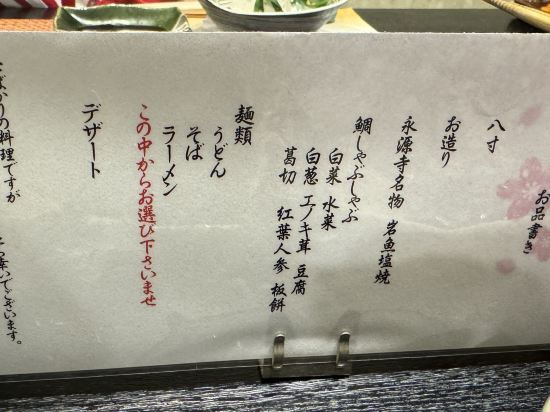 お品書き
八寸
お造り
永源寺名物 岩魚塩焼
鯛しゃぶしゃぶ
白菜 水菜
白葱 エノキ茸 豆腐
葛切 紅葉人参 板餅
麺類
うどん
そば
ラーメン
この中からお選び下さいませ
デザート
ばかりの料理ですが
いでございます。